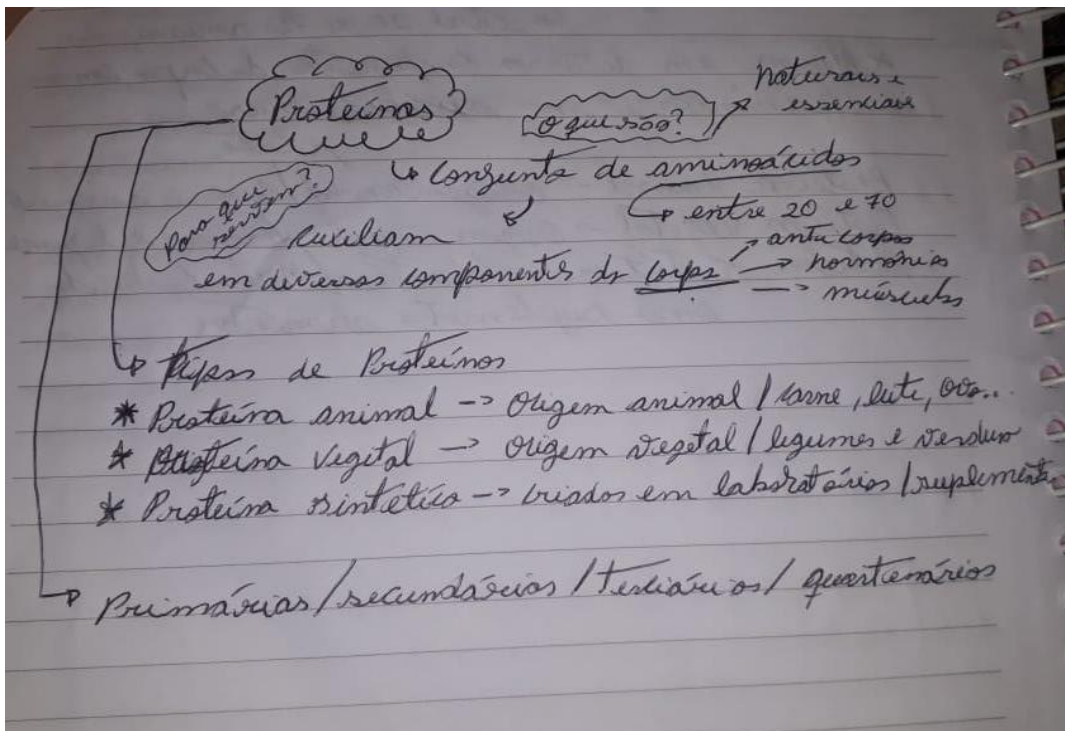 Proteínas
O que são?
naturais e
essenciais
↳ Conjunto de aminoácidos
↳ entre 20 e 70
Para que
servem?
Auxiliam
em diversos componentes do corpo
→ anti corpos
→ hormônios
→ músculos
↳ Tipos de Proteínas
* Proteína animal -> Origem animal / carne, leite, ovo...
* Proteína vegetal -> Origem vegetal / legumes e verduras
* Proteína sintética -> criados em laboratórios / suplementos
Primárias / secundárias / terciários / quartenários